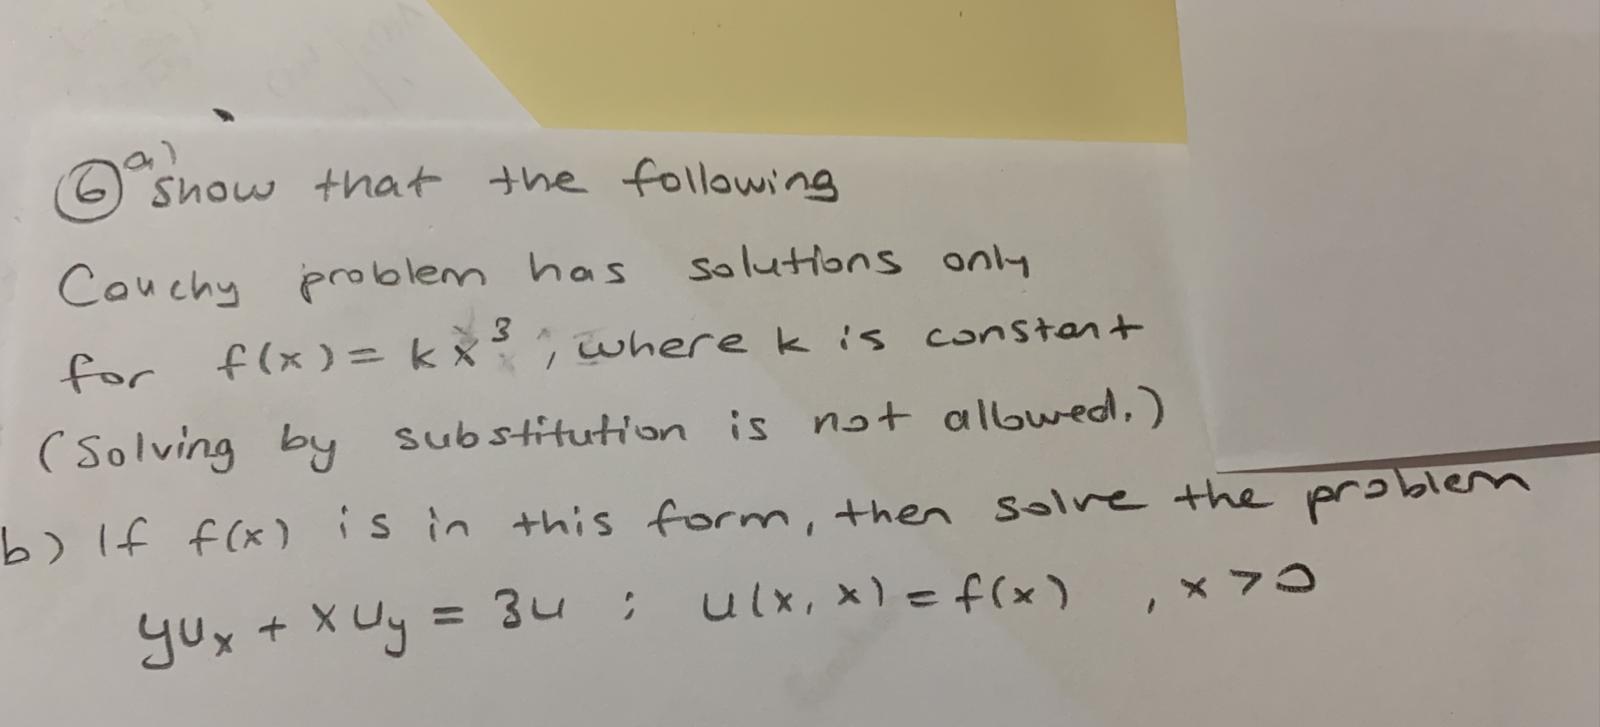 ⑥ a) show that the following
Cauchy problem has solutions only
for f(x) = kx³, where k is constant
(Solving by substitution is not allowed.)
b) If f(x) is in this form, then solve the problem
yuₓ + xu_y = 3u ; u(x, x) = f(x) , x > 0